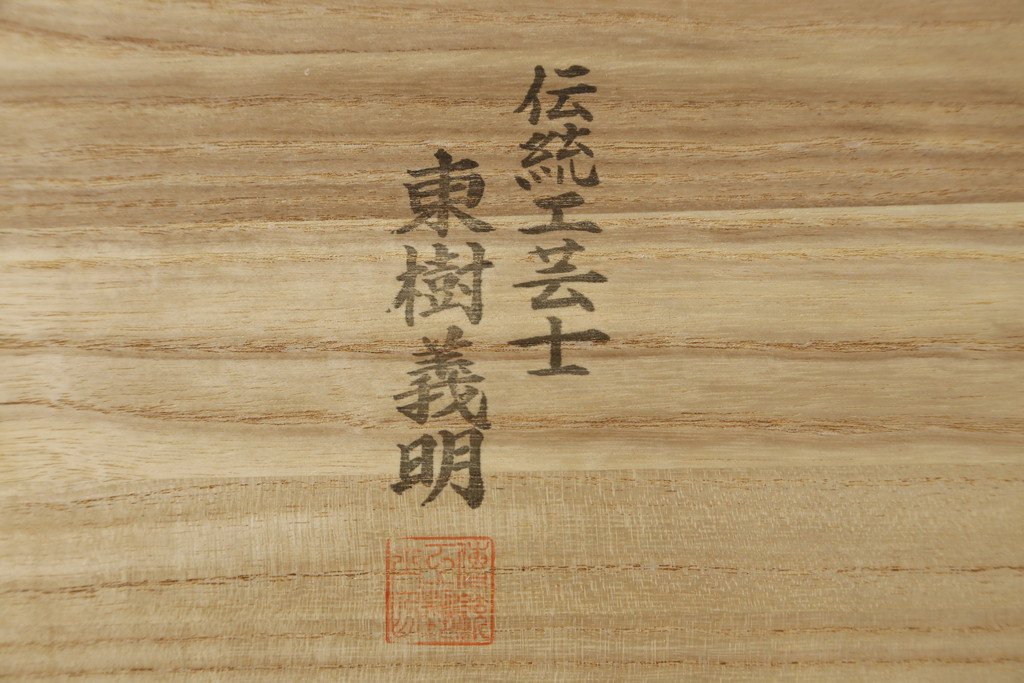 伝統工芸士
東樹義明